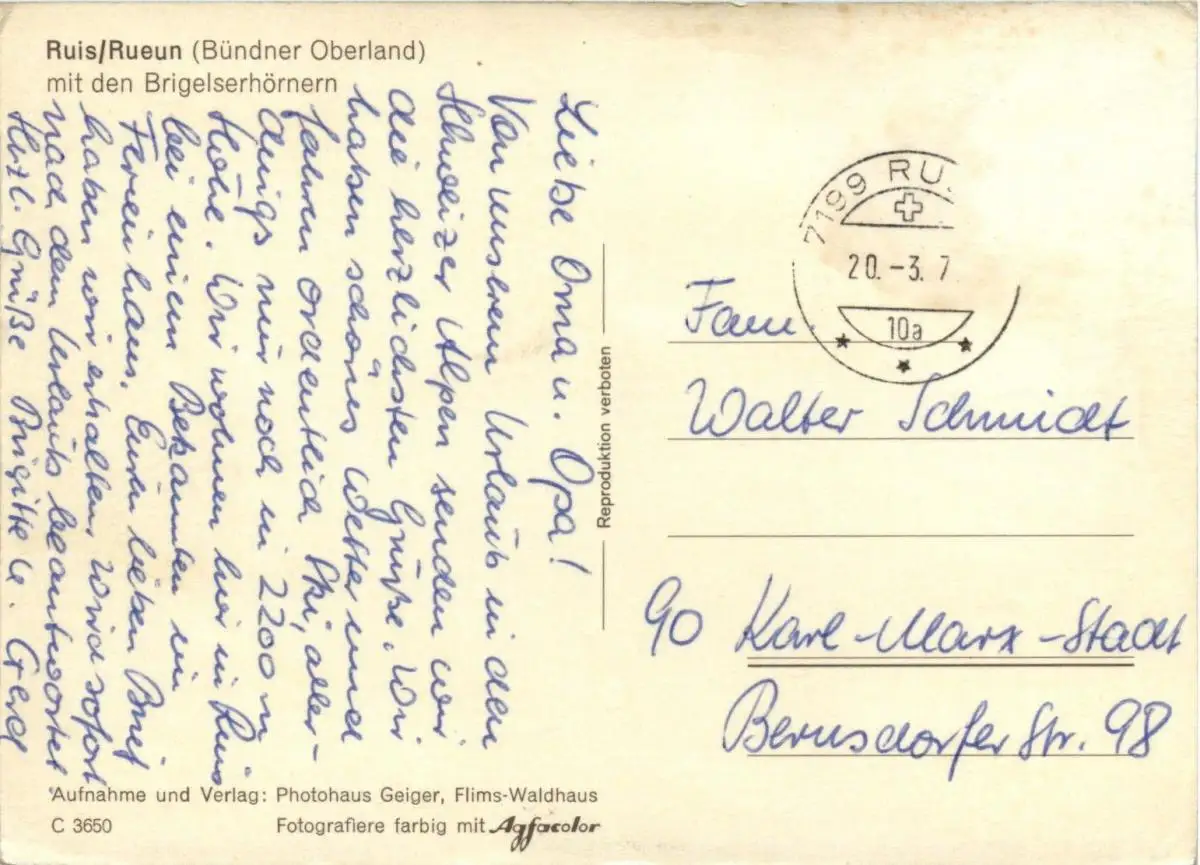 Ruis/Rueun (Bündner Oberland)
mit den Brigelserhörnern
Liebe Oma u. Opa!
Von unserem Urlaub in den
Schweizer Alpen senden wir
die herzlichsten Grüße. Wir
haben schönes Wetter und
fahren ordentlich Ski, aller-
dings nur noch in 2200 m
Höhe. Wir wohnen hier in Ruis
bei einem Bekannten im
Ferienhaus. Euren lieben Brief
haben wir erhalten. Wird sofort
nach dem Urlaub beantwortet
Herzl. Grüße Brigitte u. Gerd
Aufnahme und Verlag: Photohaus Geiger, Flims-Waldhaus
C 3650
Fotografiere farbig mit Agfacolor
Reproduktion verboten
7199 RU
20.-3.7
10a
Fam.
Walter Schmidt
90 Karl-Marx-Stadt
Bernsdorfer Str. 98